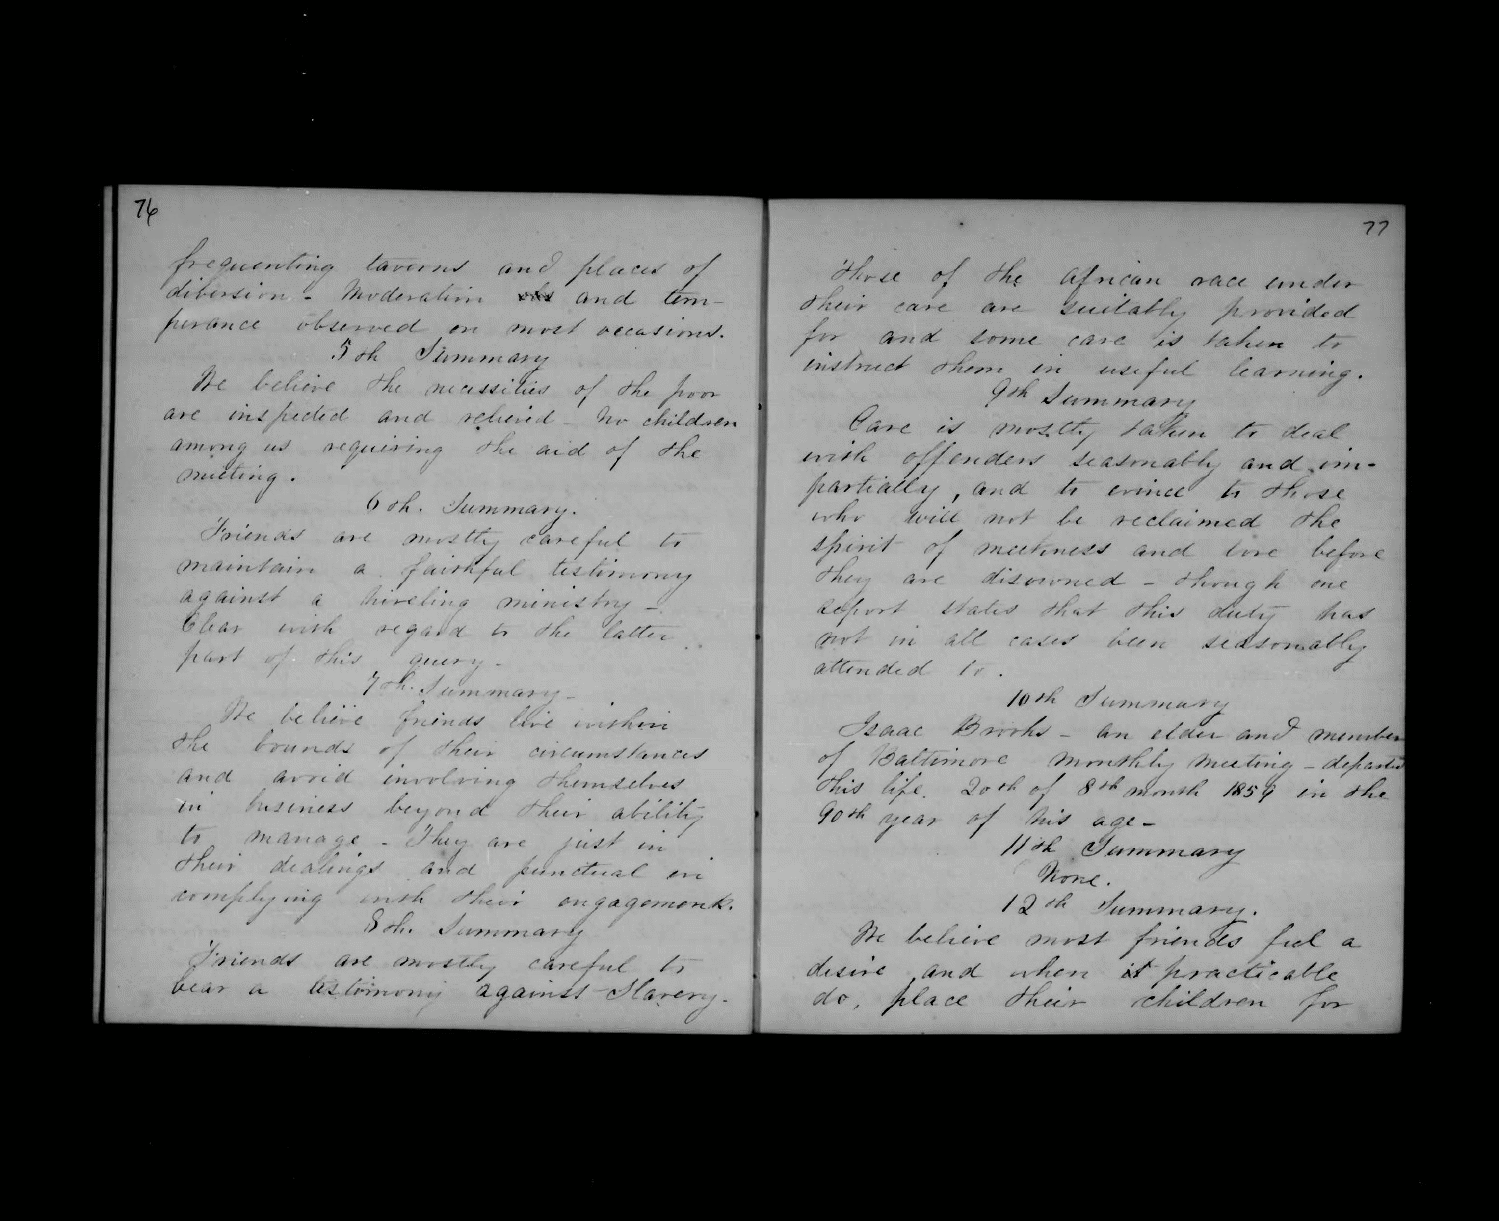 76
frequenting taverns and places of
diversion - Moderation and tem-
perance observed on most occasions.
5th Summary
We believe the necessities of the poor
are inspected and relieved - No children
among us requiring the aid of the
meeting.
6th. Summary.
Friends are mostly careful to
maintain a faithful testimony
against a hireling ministry -
Clear with regard to the latter
part of this query -
7th. Summary -
We believe friends live within
the bounds of their circumstances
and avoid involving themselves
in business beyond their ability
to manage - They are just in
their dealings and punctual in
complying with their engagements.
8th. Summary
Friends are mostly careful to
bear a testimony against Slavery -
77
Those of the african race under
their care are suitably provided
for and some care is taken to
instruct them in useful learning.
9th Summary
Care is mostly taken to deal
with offenders seasonably and im-
partially, and to evince to those
who will not be reclaimed the
spirit of meekness and love before
they are disowned - though one
report states that this duty has
not in all cases been seasonably
attended to.
10th Summary
Isaac Brooks - an elder and member
of Baltimore monthly meeting - departed
this life. 20th of 8th month 1859 in the
90th year of his age -
11th Summary
None.
12th Summary.
We believe most friends feel a
desire and when it practicable
do, place their children for